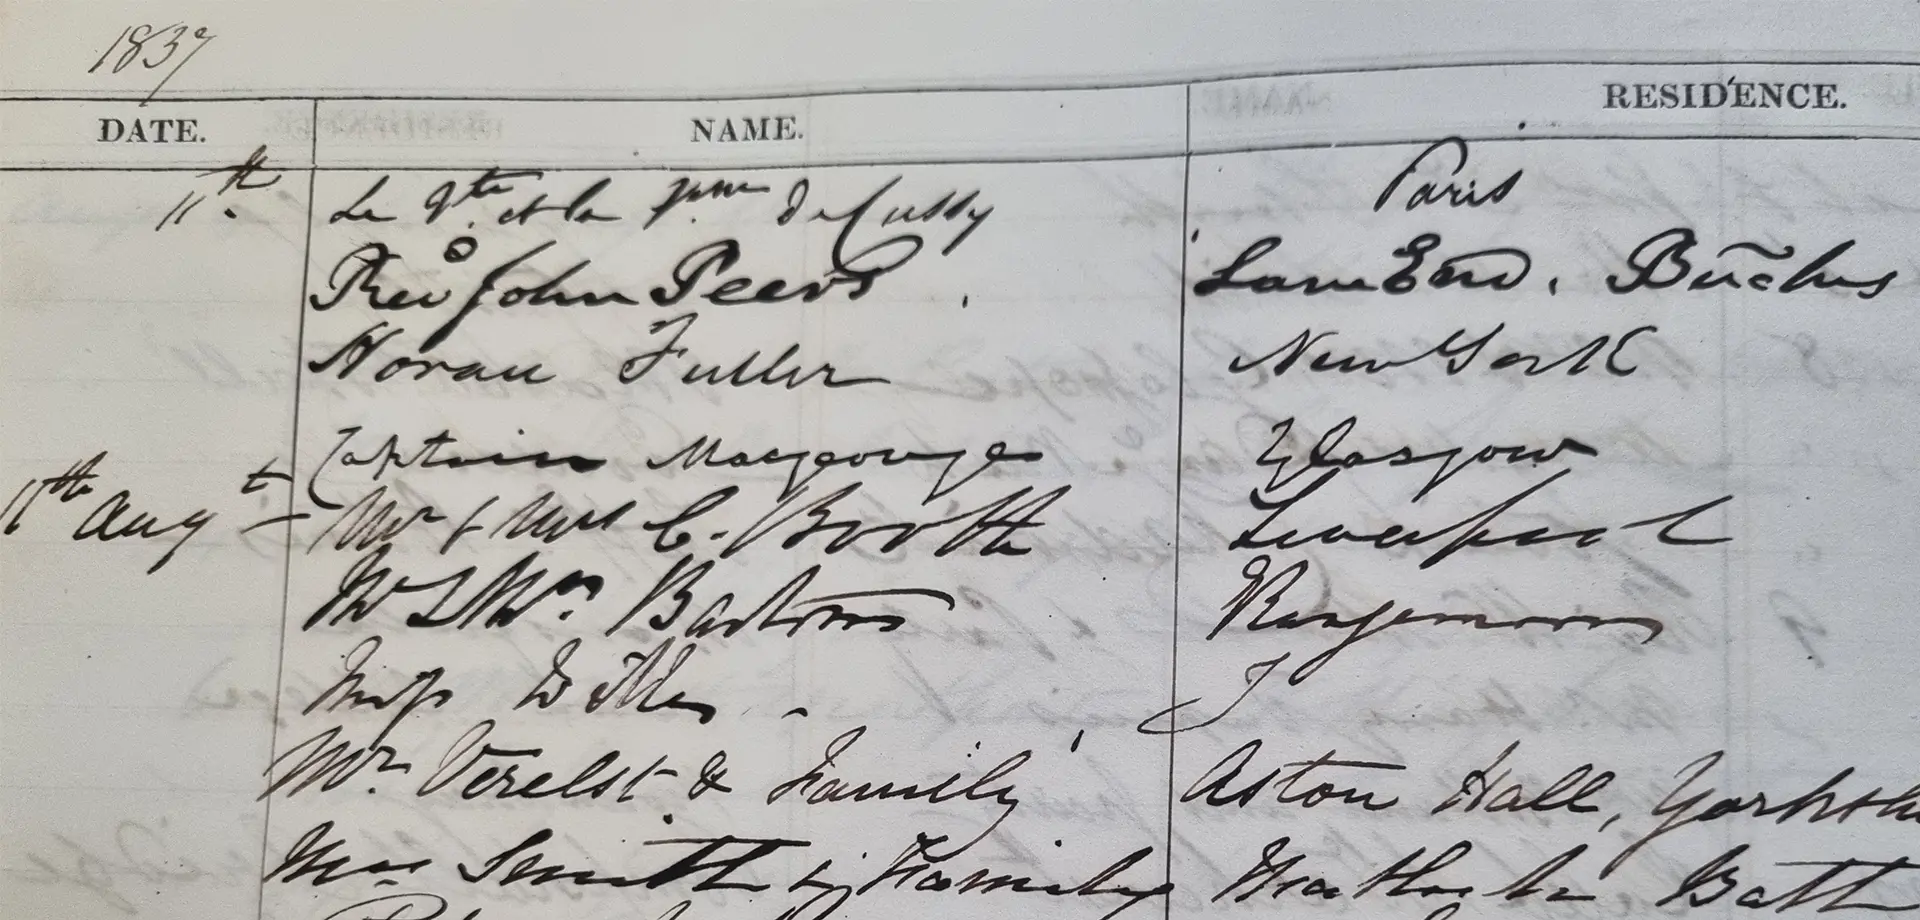 1837
DATE. NAME. RESIDENCE.
11th. Le Vte. et la De Cussy Paris
Revd John Peers Lane End. Bucks
Horace Fuller New York
Captain Macgeorge Glasgow
11th Augt Mr & Mrs C. Booth Liverpool
Mr & Mrs. Rangemoor
Miss
Mr. Verelst & Family Aston Hall, Yorkshi
Mrs Smith & Family Bath